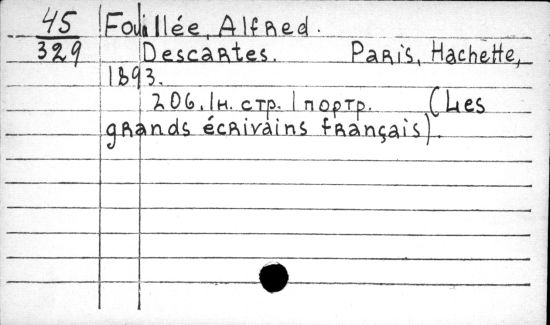 45 Fouillée, Alfred.
329 Descartes. Paris, Hachette,
1893.
206, 1 н. стр. 1 портр. (Les
grands écrivains français).